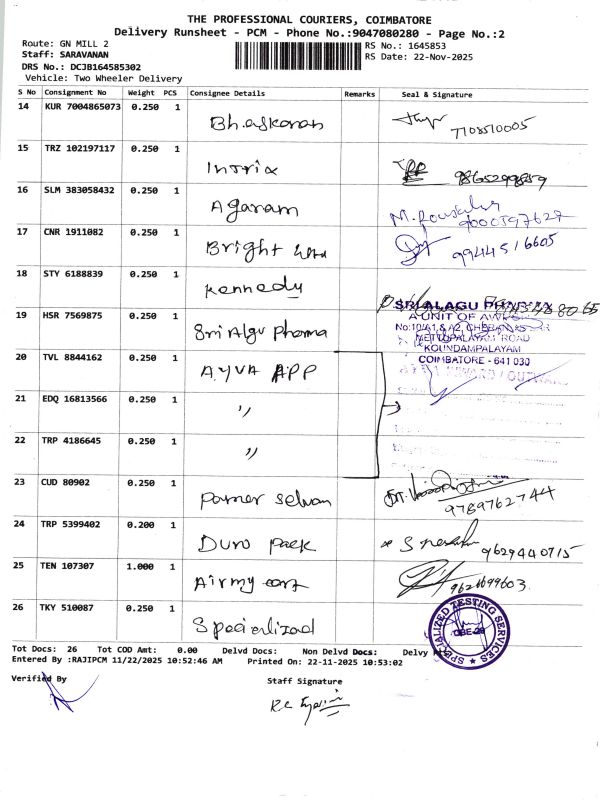 THE PROFESSIONAL COURIERS, COIMBATORE
Delivery Runsheet - PCM - Phone No.:9047080280 - Page No.:2
Route: GN MILL 2
Staff: SARAVANAN
DRS No.: DCJB164585302
Vehicle: Two Wheeler Delivery
RS No.: 1645853
RS Date: 22-Nov-2025
S No Consignment No Weight PCS Consignee Details Remarks Seal & Signature
14 KUR 7004865073 0.250 1 Bhaskaran 7708510005
15 TRZ 102197117 0.250 1 Intrix 9865299859
16 SLM 383058432 0.250 1 Agaram 9000597627
17 CNR 1911082 0.250 1 Bright 9944516605
18 STY 6188839 0.250 1 Kennedy
19 HSR 7569875 0.250 1 Sri Algu Pharma
SRI ALAGU PHARMA
A UNIT OF
METTUPALAYAM ROAD
KOUNDAMPALAYAM
COIMBATORE - 641 030
20 TVL 8844162 0.250 1 AYVA APP
21 EDQ 16813566 0.250 1 "
22 TRP 4186645 0.250 1 "
23 CUD 80902 0.250 1 Selvan 9789762744
24 TRP 5399402 0.200 1 Duro pack 9629440715
25 TEN 107307 1.000 1 Airmy
26 TKY 510087 0.250 1 Specialized
SPECIALIZED TESTING SERVICES
CBE-29
Tot Docs: 26 Tot COD Amt: 0.00 Delvd Docs: Non Delvd Docs: Delvy
Entered By :RAJIPCM 11/22/2025 10:52:46 AM Printed On: 22-11-2025 10:53:02
Verified By
Staff Signature